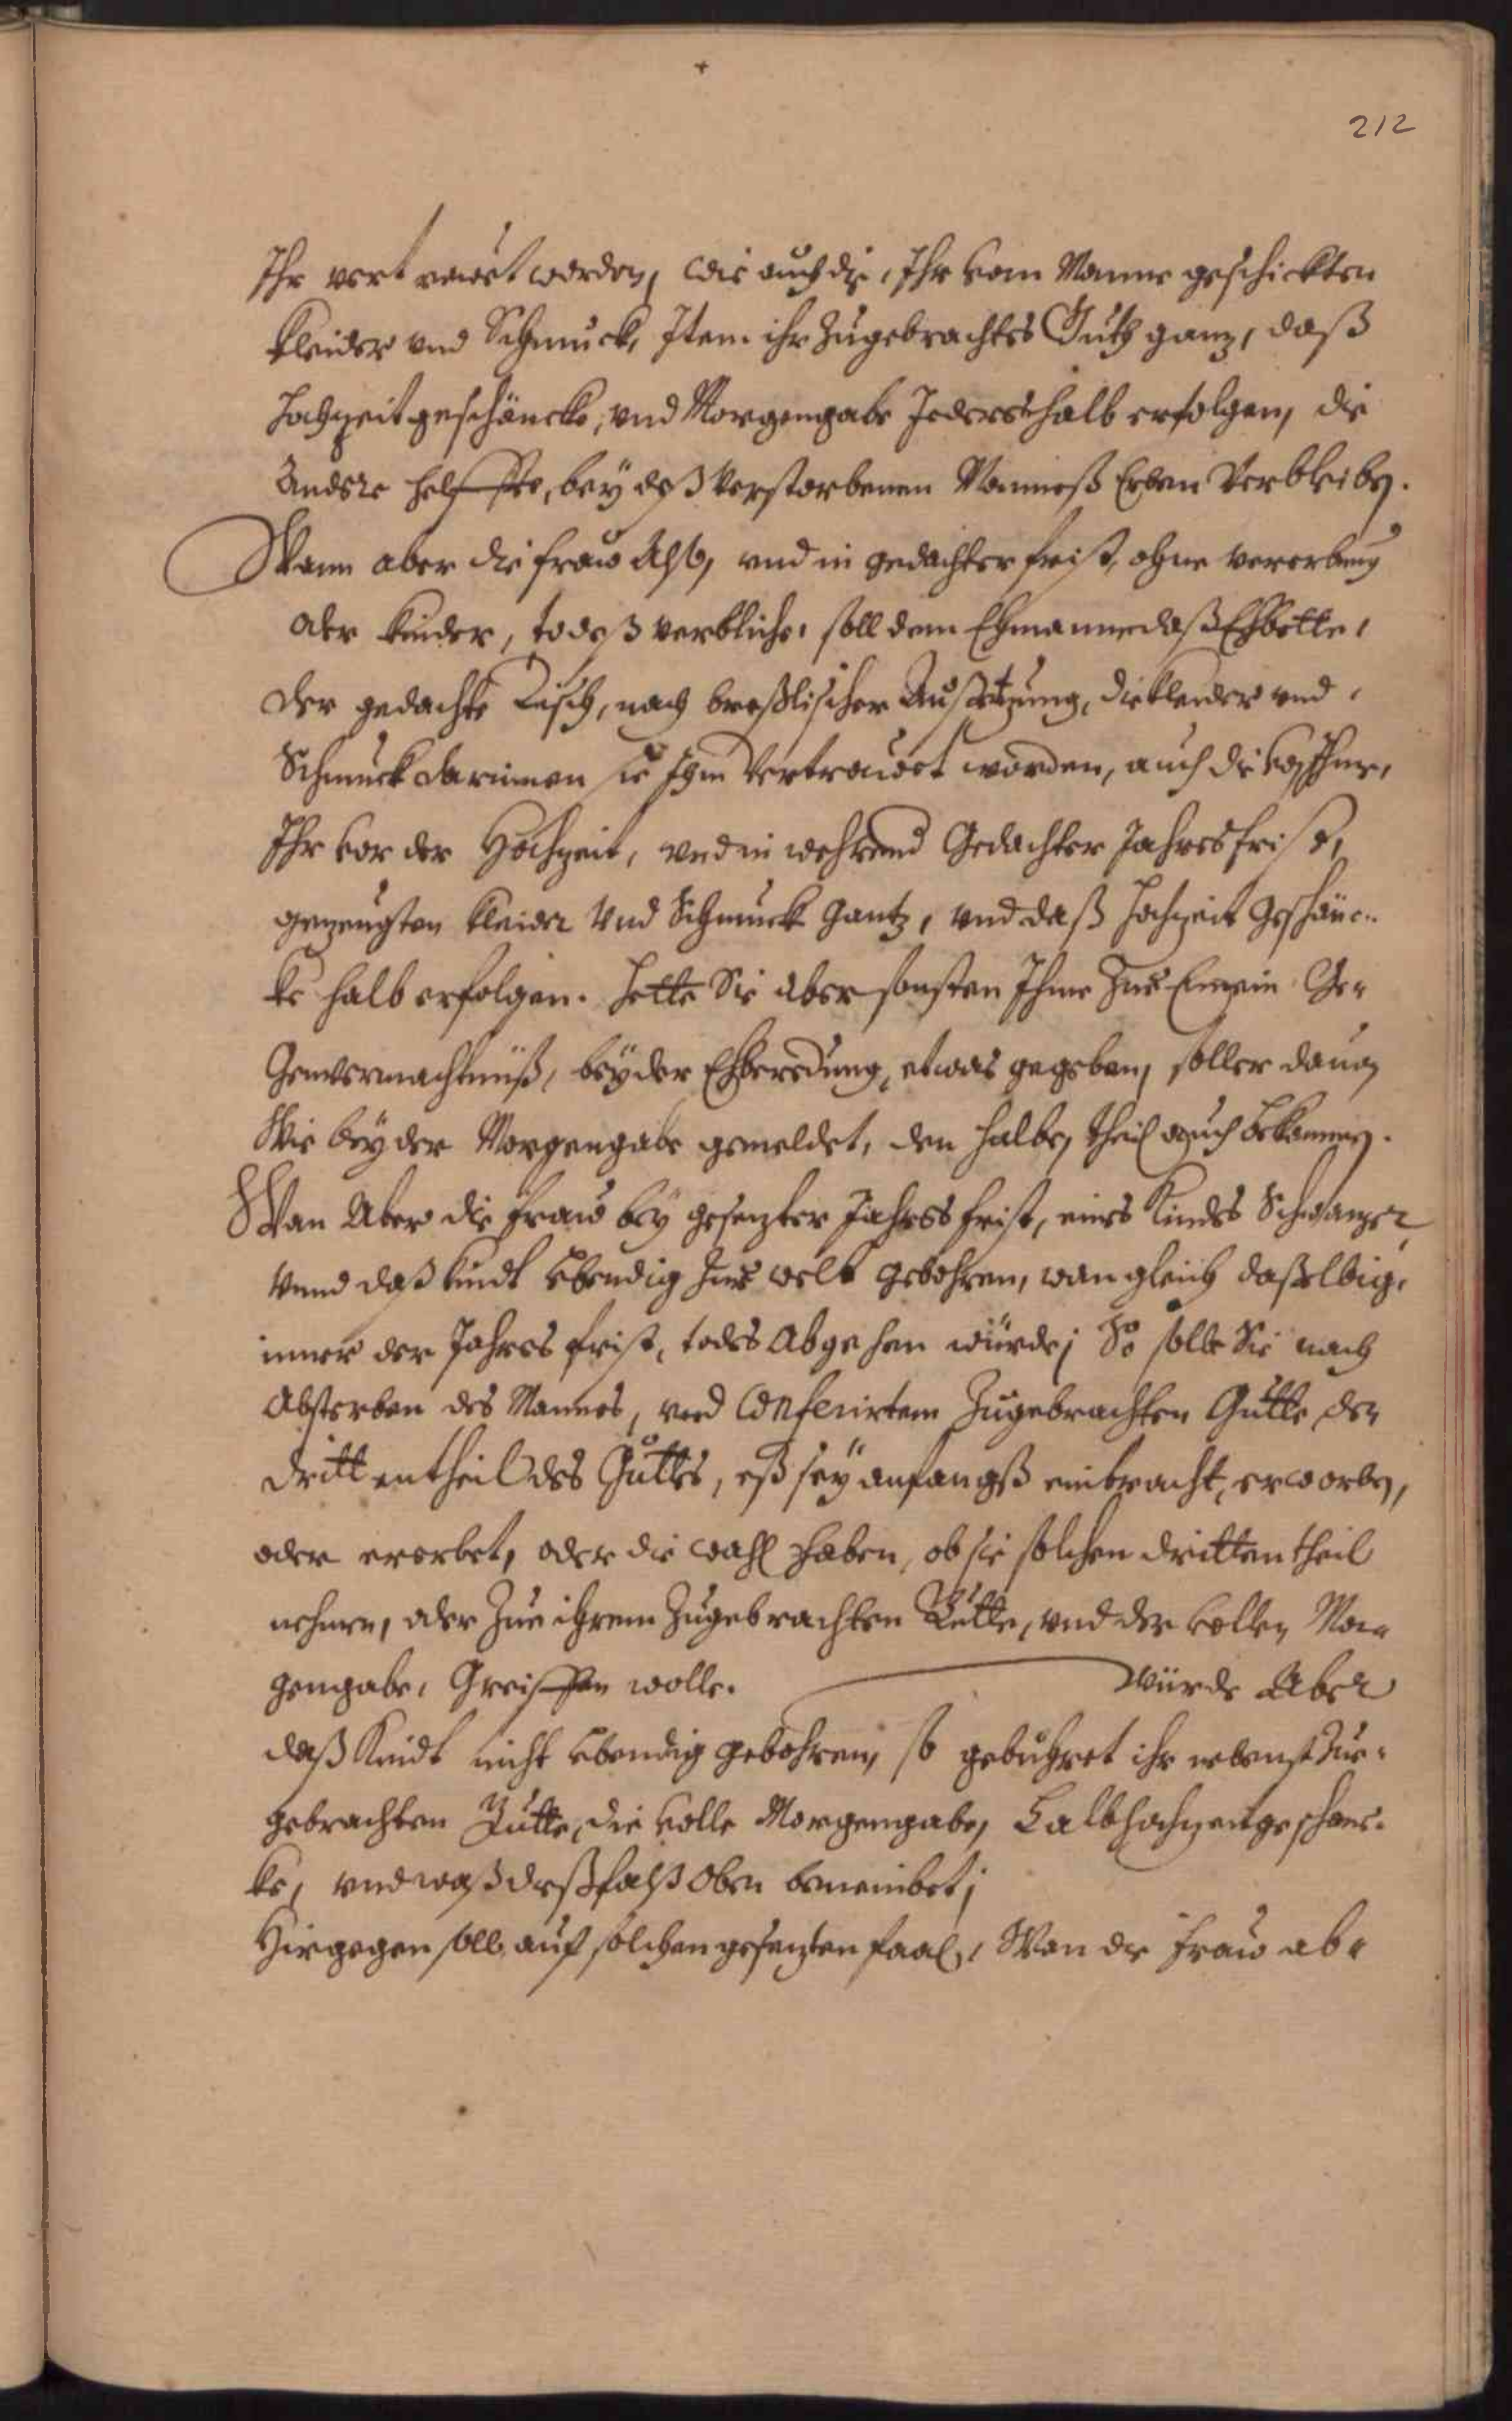 212
Ihr vert rawet worden, wie auch die, Ihr vom Manne geschickten
Kleider vnd Schmuck, Item ihr Zugebrachtes Gutt ganz, daß
Hochzeit geschäncke, vnd Morgengabe Jederes halb erfolgen, die
Andere helffte, bey deß Verstorbenen Manneß Erben Verbleiben.
Wann aber die fraw Also, vnd in gedachter frist, ohne vererbung
oder Kinder, todeß verbliche, soll dem Ehmanne daß Ehbette,
der gedachte Tisch, nach breßlischer Außsetzung, die Kleider vnd
Schmuck darinnen sie Ihm Vertrawet worden, auch die von Ihme,
Ihr vor der Hochzeit, vnd in wehrend Gedachter Jahres frist,
gezeugten Kleider Vnd Schmuck Gantz, vnd daß Hochzeit Geschänc-
ke halb erfolgen. Hette Sie aber sonsten Ihme Zue Ge-
Genvermachtnüß, bey der Ehberedung, etwas gegeben, soll er davon
Wie bey der Morgengabe gemeldet, den halben theil auch bekommen.
Wan Aber die Fraw bey gesezter Jahres frist, eines Kindes Schwanger,
Vnnd daß Kindt lebendig Zur welt gebohren, wan gleich daßelbige
inner der Jahres frist, todes Abgehen würde; So solle Sie nach
Absterben des Mannes, vnd Conferirtem Zugebrachten Gutte, den
dritten theil des Guttes, eß sey anfangß einbracht, erworben,
oder ererbet, oder die wahl haben, ob sie solchen dritten theil
nehmen, oder Zue ihrem Zugebrachten Gutte, vnd der vollen Mor-
gengabe, Greiffen wolle. Würde Aber
daß Kindt nicht lebendig gebohren, so gebühret ihr nebenst Zue-
gebrachten Gutte, die volle Morgengabe, halb hochzeitgeschenc-
ke, vnd waß deßfalß Oben benennet;
Hingegen soll auf solchen gesezten faal, Wan die Fraw ab-